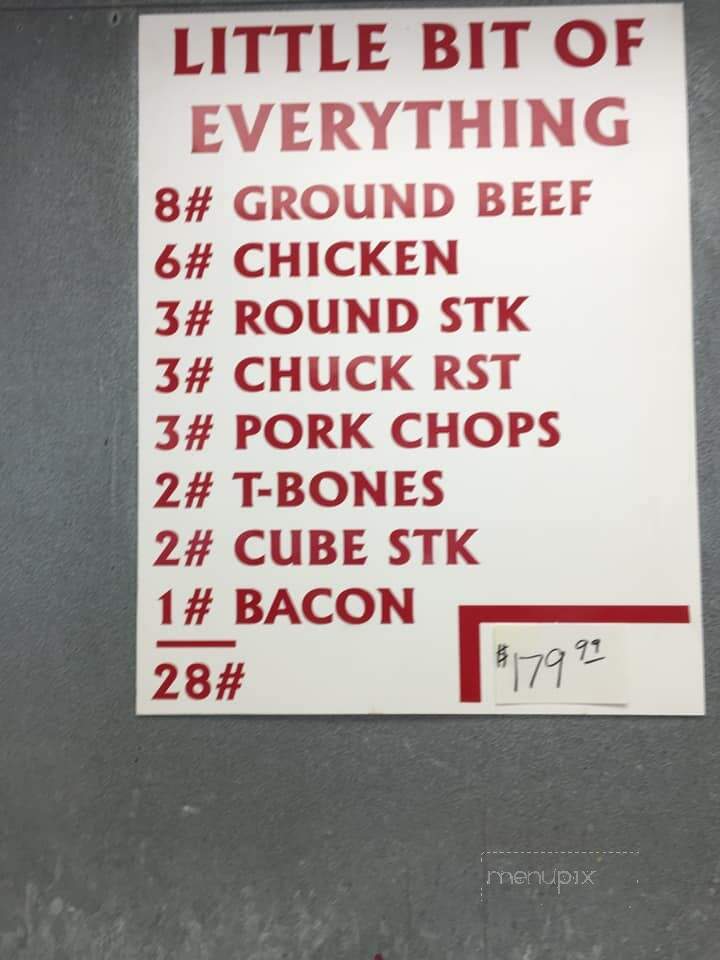 LITTLE BIT OF
EVERYTHING
8# GROUND BEEF
6# CHICKEN
3# ROUND STK
3# CHUCK RST
3# PORK CHOPS
2# T-BONES
2# CUBE STK
1# BACON
28#
$179.99
menupix